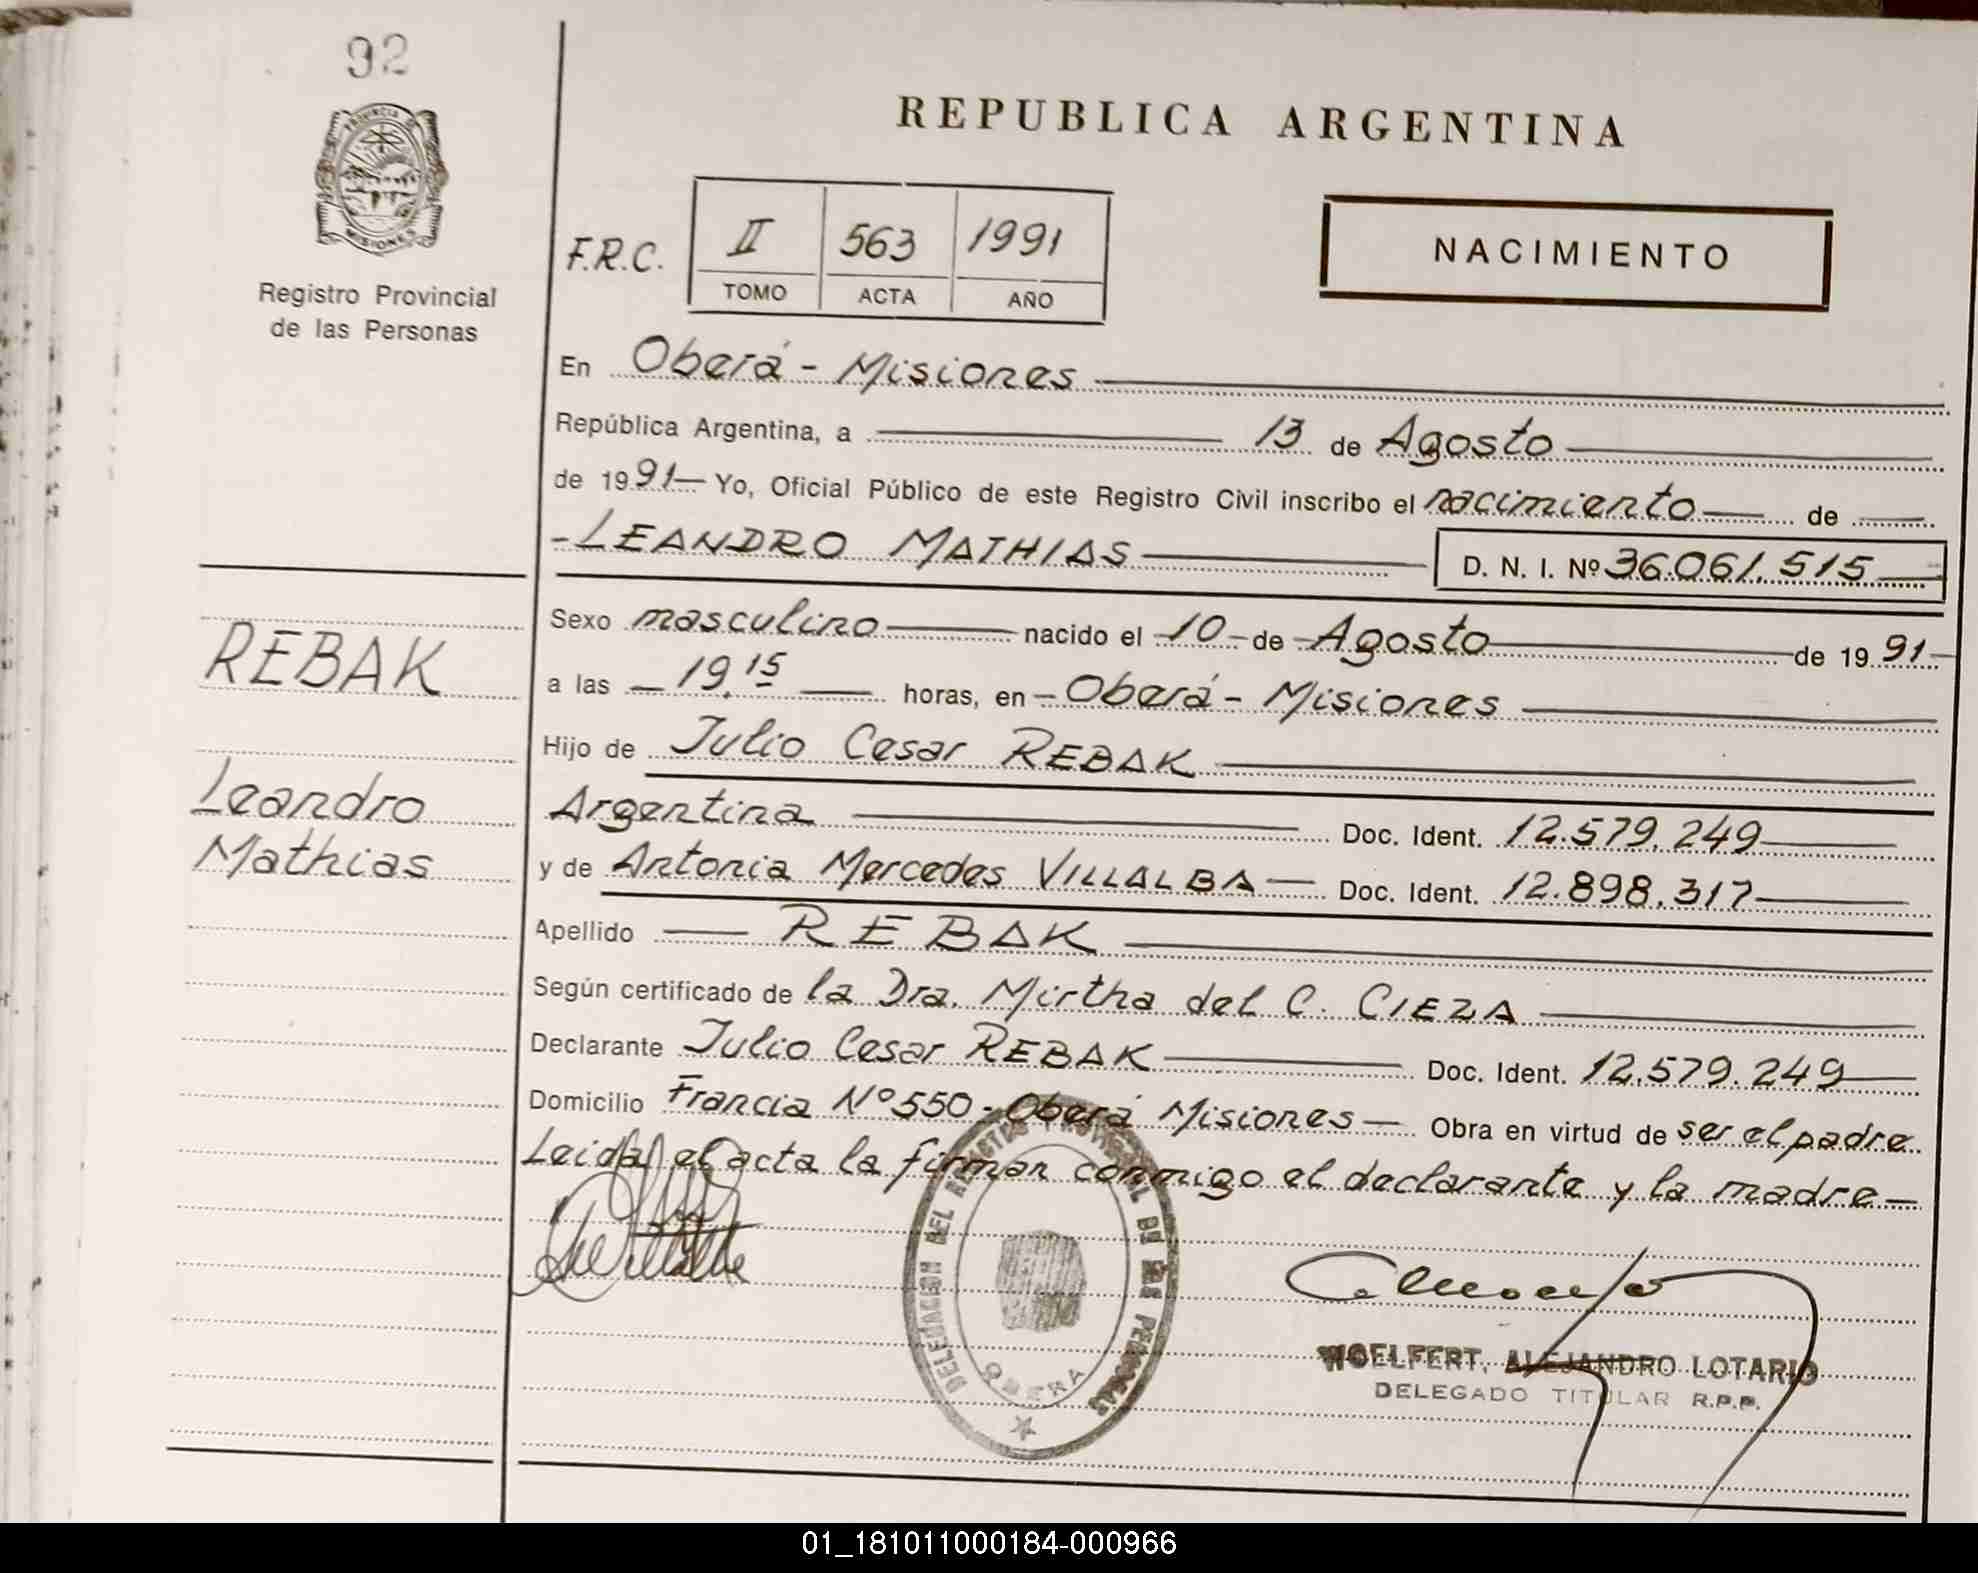 92
PROVINCIA DE
MISIONES
Registro Provincial
de las Personas
REPUBLICA ARGENTINA
F.R.C.
II 563 1991
TOMO ACTA AÑO
NACIMIENTO
En Oberá - Misiones
República Argentina, a 13 de Agosto
de 1991 Yo, Oficial Público de este Registro Civil inscribo el nacimiento de
- LEANDRO MATHIAS D. N. I. Nº 36.061.515
Sexo masculino nacido el 10 de Agosto de 1991
a las 19,15 horas, en Oberá - Misiones
Hijo de Julio Cesar REBAK
Argentina Doc. Ident. 12.579.249
y de Antonia Mercedes VILLALBA Doc. Ident. 12.898.317
Apellido REBAK
Según certificado de la Dra. Mirtha del C. CIEZA
Declarante Julio Cesar REBAK Doc. Ident. 12.579.249
Domicilio Francia Nº 550 - Oberá Misiones Obra en virtud de ser el padre
Leida el acta la firman conmigo el declarante y la madre
REBAK
Leandro
Mathias
DELEGACION DEL REGISTRO PROVINCIAL DE LAS PERSONAS
OBERA
WOELFERT, ALEJANDRO LOTARIO
DELEGADO TITULAR R.P.P.
01_181011000184-000966